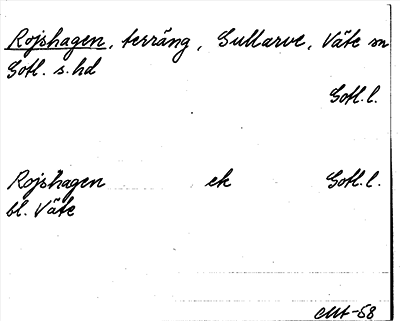 Rojshagen, terräng, Gullarve, Väte sn
Gotl. s. hd
Gotl. l.
Rojshagen ek Gotl. l.
bl. Väte
CMt-58